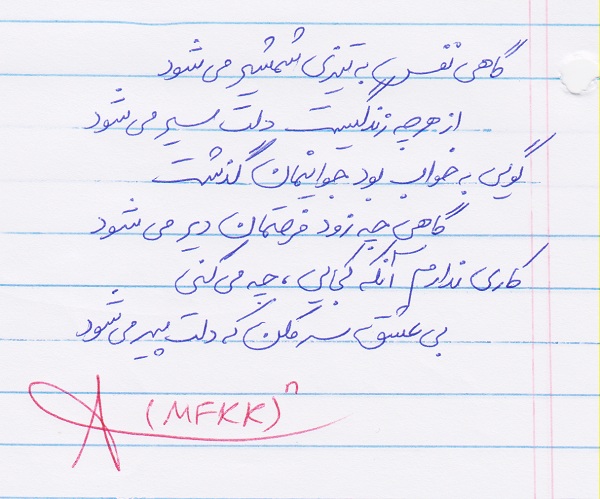 گاهی نفس به تیزی شمشیر می شود
از هر چه زندگیست دلت سیر می شود
گویی به خواب بود جوانیمان گذشت
گاهی چه زود فرصتمان دیر می شود
کاری ندارم آنکه کجایی ، چه می کنی
بی عشق سر مکن که دلت پیر می شود
(MFKK)ⁿ